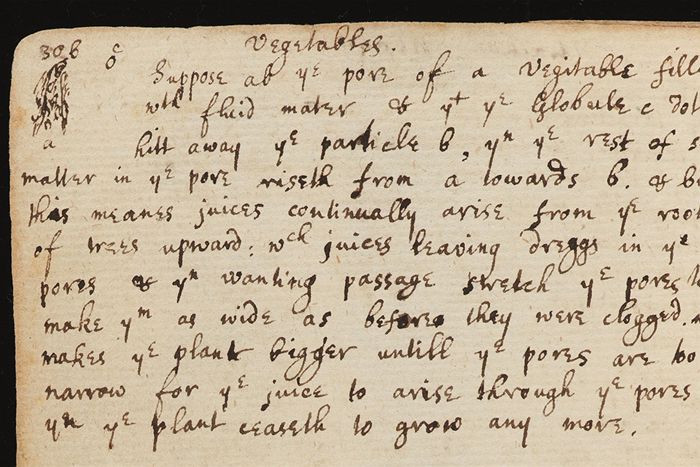 306 c Vegetables.
o
Suppose ab yᵉ pore of a Vegitable fill
wᵗʰ fluid mater & yᵗ yᵉ Globule c dot
a hitt away yᵉ particle b, yⁿ yᵉ rest of s
matter in yᵉ pore riseth from a towards b. & b
this meanes juices continually arise from yᵉ roo
of trees upward: wᶜʰ juices leaving dreggs in yᵉ
pores & yⁿ wanting passage stretch yᵉ pores t
make yᵐ as wide as before they were clogged.
makes yᵉ plant bigger untill yᵉ pores are too
narrow for yᵉ juice to arise through yᵉ pores
yⁿ yᵉ plant ceaseth to grow any more.